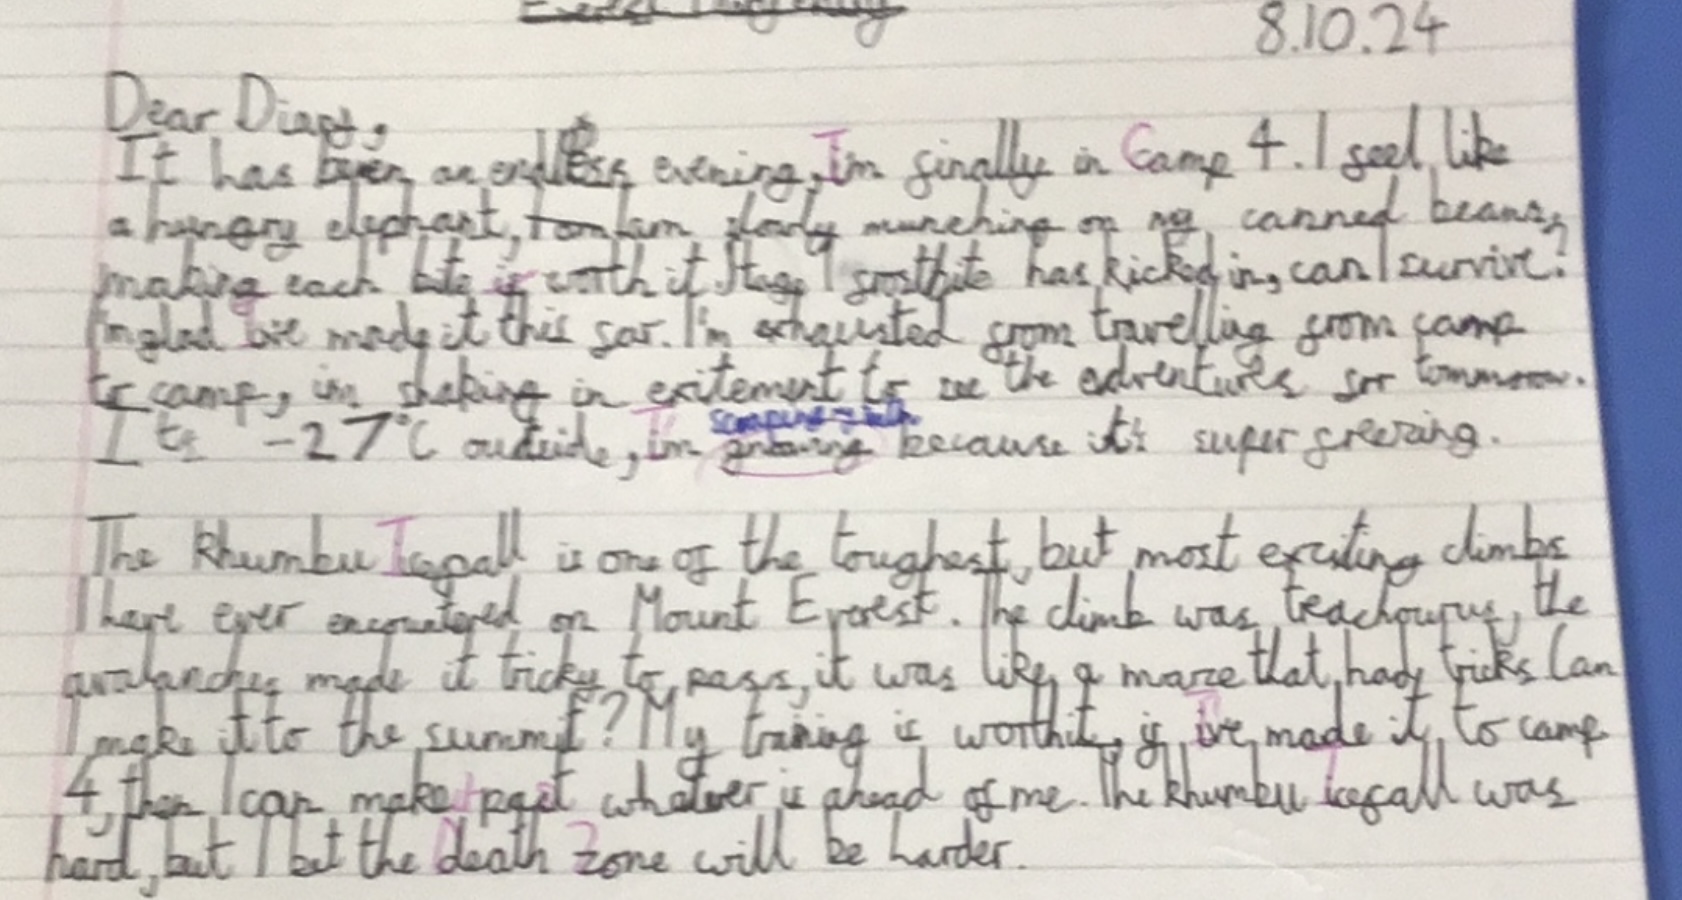 8.10.24
Dear Diary,
It has been an endless evening, Im finally in Camp 4. I feel like
a hungry elephant, I am slowly munching on my canned beans,
making each bite is worth it. Stage 1 frostbite has kicked in, can I survive?
I'm glad Ive made it this far. I'm exhausted from travelling from camp
to camp, im shaking in exitement to see the adventures for tommorow.
Its -27°C outside, Im because it's super freezing.
The Khumbu Icefall is one of the toughest, but most exciting climbs
I have ever encountered on Mount Everest. The climb was teachourus, the
avalanches made it tricky to pass, it was like a maze that had tricks Can
I make it to the summit? My training is worth it, if Ive made it to camp
4, then I can make it past whatever is ahead of me. The Khumbu Icefall was
hard, but I bet the Death Zone will be harder.